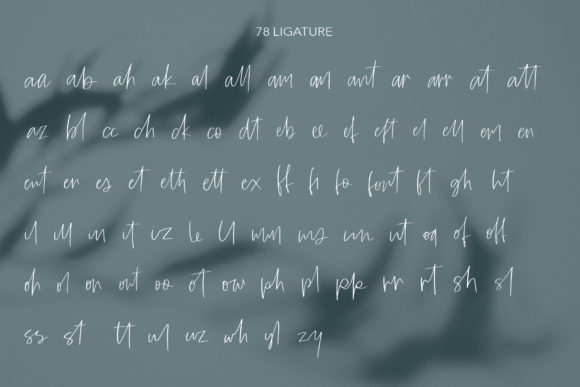 78 LIGATURE
aa ab ah ak al all am an ant ar arr at att
az bl cc ch ck co dt eb ee ef eft el ell em en
ent er es et eth ett ex ff fi fo font ft gh ht
il ill in it iz le ll mm ms nn nt oa of off
oh ol on ont oo ot ow ph pl pp rr rt sh sl
ss st tt ul uz wh yl zy